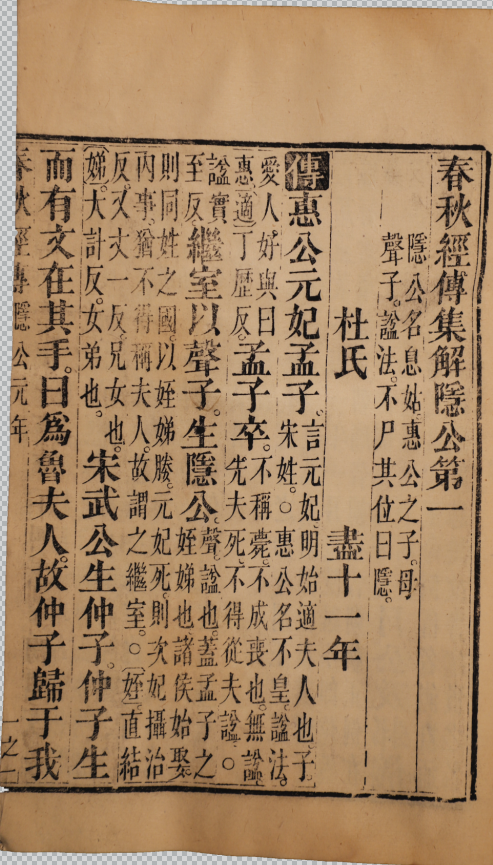 春秋經傳集解隱公第一
隱公名息姑。惠公之子。母
聲子。諡法。不尸其位曰隱。
杜氏 盡十一年
傳惠公元妃孟子。言元妃。明始適夫人也。子。宋姓。○惠公名不皇。諡法。
愛人好與曰惠。適丁歷反。孟子卒。不稱薨。不成喪也。無諡先夫死。不得從夫諡。○
諡實至反繼室以聲子。生隱公。聲諡也。蓋孟子之姪娣也諸侯始娶
則同姓之國。以姪娣媵。元妃死。則次妃攝治
內事。猶不得稱夫人。故謂之繼室。○姪直結
反。又丈一反。兄女也。娣。大計反。女弟也。宋武公生仲子。仲子生
而有文在其手。曰爲魯夫人。故仲子歸于我
春秋經傳 隱公元年 一之一